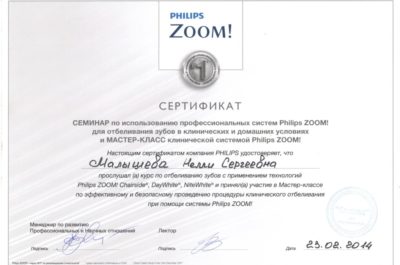 PHILIPS
ZOOM!
1
СЕРТИФИКАТ
СЕМИНАР по использованию профессиональных систем Philips ZOOM!
для отбеливания зубов в клинических и домашних условиях
и МАСТЕР-КЛАСС клинической системой Philips ZOOM!
Настоящим сертификатом компания PHILIPS удостоверяет, что
Малышева Нелли Сергеевна
прослушал (а) курс по отбеливанию зубов с применением технологий
Philips ZOOM! Chairside®, DayWhite®, NiteWhite® и принял(а) участие в Мастер-классе
по эффективному и безопасному проведению процедуры клинического отбеливания
при помощи системы Philips ZOOM!
Менеджер по развитию
Профессиональных и Научных отношений
Лектор
Подпись
Подпись
Дата
23.02.2014